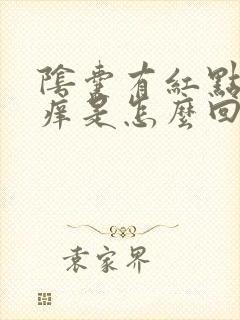 陰囊有紅點
痒是怎麼回
袁家界